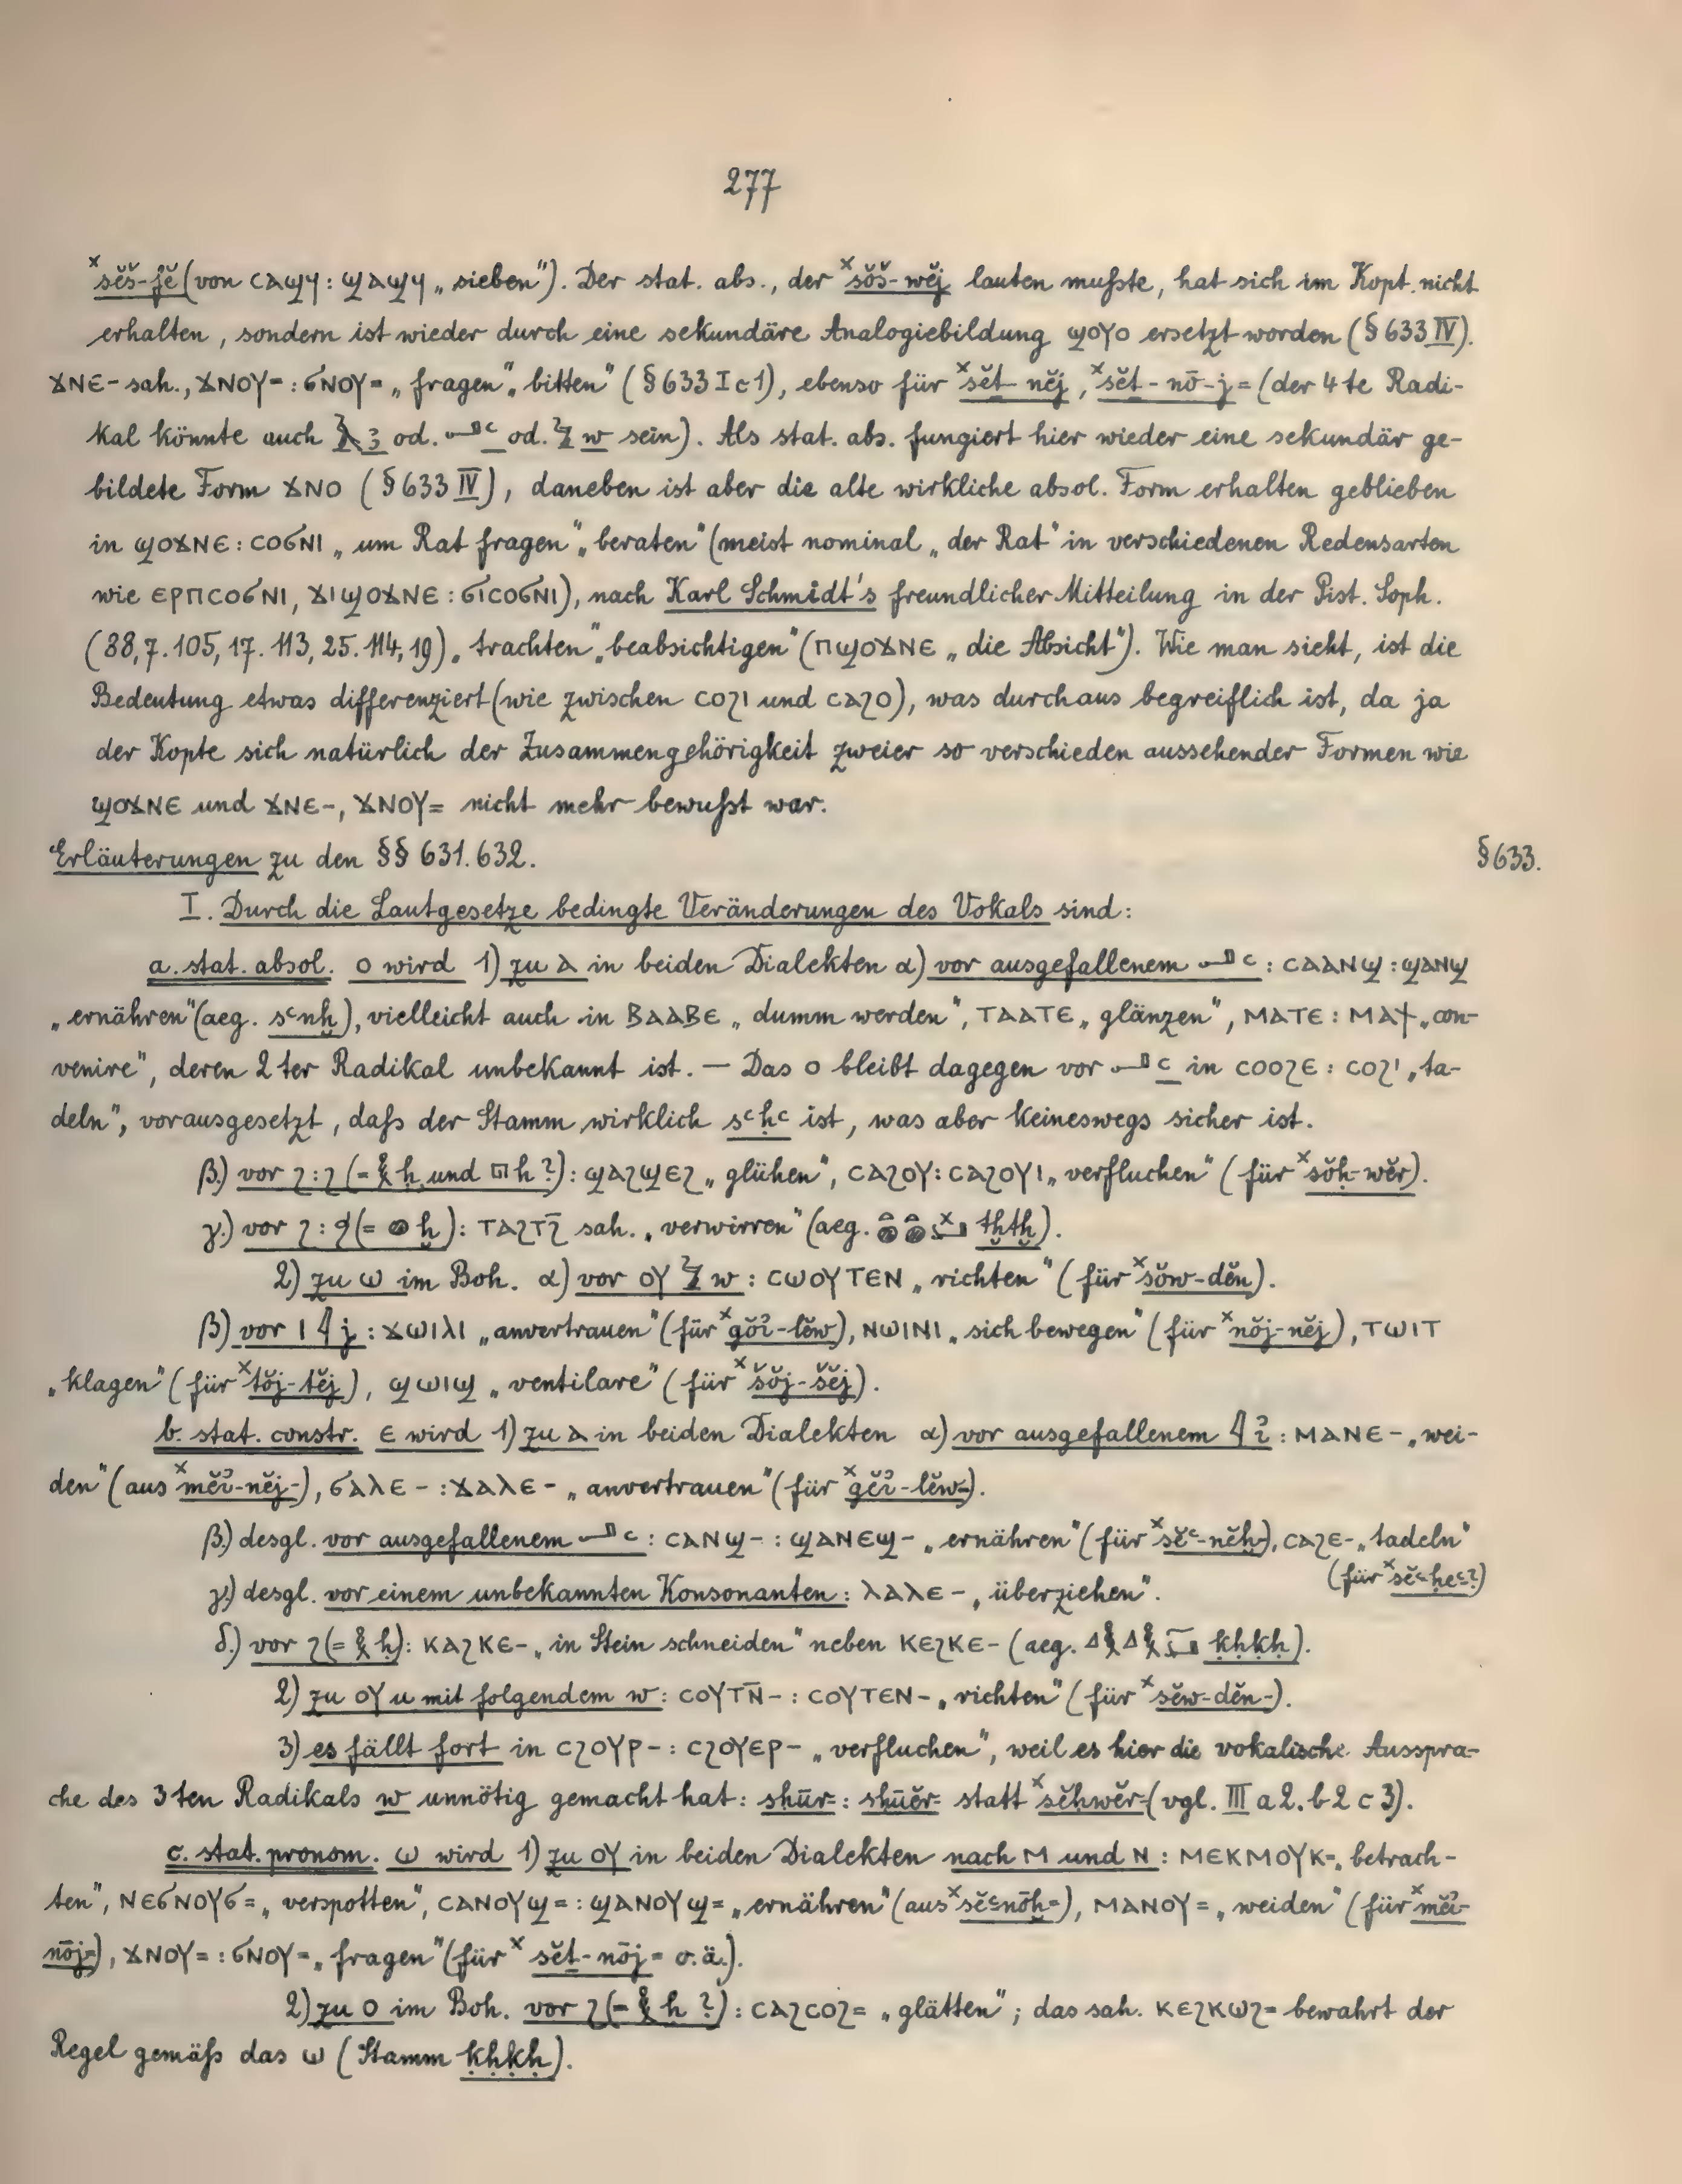 277
ˣsĕš-fĕ (von ⲥⲁϣϥ : ϣⲁϣϥ „sieben“). Der stat. abs., der ˣšŏš-wĕj lauten mußte, hat sich im Kopt. nicht
erhalten, sondern ist wieder durch eine sekundäre Analogiebildung ϣⲟⲩⲟ ersetzt worden (§ 633 IV).
ϫⲛⲉ- sah., ϫⲛⲟⲩ= : ϭⲛⲟⲩ= „fragen“ „bitten“ (§ 633 I c 1), ebenso für ˣšĕṯ-nĕj, ˣšĕṯ-nō-j= (der 4te Radi-
kal könnte auch 𓄿 ꜣ od. 𓂝 ꜥ od. 𓅱 w sein). Als stat. abs. fungiert hier wieder eine sekundär ge-
bildete Form ϫⲛⲟ (§ 633 IV), daneben ist aber die alte wirkliche absol. Form erhalten geblieben
in ϣⲟϫⲛⲉ : ⲥⲟϭⲛⲓ „um Rat fragen“ „beraten“ (meist nominal „der Rat“ in verschiedenen Redensarten
wie ⲉⲣⲡⲥⲟϭⲛⲓ, ϫⲓϣⲟϫⲛⲉ : ϭⲓⲥⲟϭⲛⲓ), nach Karl Schmidt's freundlicher Mitteilung in der Pist. Soph.
(88,7. 105,17. 113,25. 114,19) „trachten“ „beabsichtigen“ (ⲡϣⲟϫⲛⲉ „die Absicht“). Wie man sieht, ist die
Bedeutung etwas differenziert (wie zwischen ⲥⲟϩⲓ und ⲥⲁϩⲟ), was durchaus begreiflich ist, da ja
der Kopte sich natürlich der Zusammengehörigkeit zweier so verschieden aussehender Formen wie
ϣⲟϫⲛⲉ und ϫⲛⲉ-, ϫⲛⲟⲩ= nicht mehr bewußt war.
Erläuterungen zu den §§ 631. 632. § 633.
I. Durch die Lautgesetze bedingte Veränderungen des Vokals sind:
a. stat. absol. ⲟ wird 1) zu ⲁ in beiden Dialekten α) vor ausgefallenem 𓂝 ꜥ : ⲥⲁⲁⲛϣ : ϣⲁⲛϣ
„ernähren“ (aeg. sꜥnḫ), vielleicht auch in ⲃⲁⲁⲃⲉ „dumm werden“, ⲧⲁⲁⲧⲉ „glänzen“, ⲙⲁⲧⲉ : ⲙⲁϯ „con-
venire“, deren 2ter Radikal unbekannt ist. — Das ⲟ bleibt dagegen vor 𓂝 ꜥ in ⲥⲟⲟϩⲉ : ⲥⲟϩⲓ „ta-
deln“, vorausgesetzt, daß der Stamm wirklich sꜥḥꜥ ist, was aber keineswegs sicher ist.
β.) vor ϩ : ϩ (= 𓎛 ḥ und 𓉔 h ?) : ϣⲁϩϣⲉϩ „glühen“, ⲥⲁϩⲟⲩ : ⲥⲁϩⲟⲩⲓ „verfluchen“ (für ˣsŏḥ-wĕr).
γ.) vor ϩ : ϧ (= 𓐍 ḫ) : ⲧⲁϩⲧϩ̄ sah. „verwirren“ (aeg. tḫtḫ).
2) zu ⲱ im Boh. α) vor ⲟⲩ 𓅱 w : ⲥⲱⲟⲩⲧⲉⲛ „richten“ (für ˣsŏw-dĕn).
β) vor ⲓ 𓇋 j : ϫⲱⲓⲗⲓ „anvertrauen“ (für ˣgŏỉ-lĕw), ⲛⲱⲓⲛⲓ „sich bewegen“ (für ˣnŏj-nĕj), ⲧⲱⲓⲧ
„klagen“ (für ˣtŏj-tĕj), ϣⲱⲓϣ „ventilare“ (für ˣšŏj-šĕj).
b. stat. constr. ⲉ wird 1) zu ⲁ in beiden Dialekten α) vor ausgefallenem 𓇋 ỉ : ⲙⲁⲛⲉ- „wei-
den“ (aus ˣmĕỉ-nĕj-), ϭⲁⲗⲉ- : ϫⲁⲗⲉ- „anvertrauen“ (für ˣgĕỉ-lĕw-).
β.) desgl. vor ausgefallenem 𓂝 ꜥ : ⲥⲁⲛϣ- : ϣⲁⲛⲉϣ- „ernähren“ (für ˣsĕꜥ-nĕḫ-), ⲥⲁϩⲉ- „tadeln“
(für ˣsĕꜥ-ḥeꜥ-?)
γ.) desgl. vor einem unbekannten Konsonanten : ⲗⲁⲗⲉ- „überziehen“.
δ.) vor ϩ (= 𓎛 ḥ) : ⲕⲁϩⲕⲉ- „in Stein schneiden“ neben ⲕⲉϩⲕⲉ- (aeg. ḳḥḳḥ).
2) zu ⲟⲩ u mit folgendem w : ⲥⲟⲩⲧⲛ̄- : ⲥⲟⲩⲧⲉⲛ- „richten“ (für ˣsĕw-dĕn-).
3) es fällt fort in ⲥϩⲟⲩⲣ- : ⲥϩⲟⲩⲉⲣ- „verfluchen“, weil es hier die vokalische Ausspra-
che des 3ten Radikals w unnötig gemacht hat: sḥūr- : sḥūĕr- statt ˣsĕḥwĕr- (vgl. III a 2. b 2 c 3).
c. stat. pronom. ⲱ wird 1) zu ⲟⲩ in beiden Dialekten nach ⲙ und ⲛ : ⲙⲉⲕⲙⲟⲩⲕ= „betrach-
ten“, ⲛⲉϭⲛⲟⲩϭ= „verspotten“, ⲥⲁⲛⲟⲩϣ= : ϣⲁⲛⲟⲩϣ= „ernähren“ (aus ˣsĕꜥ-nōḫ=), ⲙⲁⲛⲟⲩ= „weiden“ (für ˣmĕỉ-
nōj=), ϫⲛⲟⲩ= : ϭⲛⲟⲩ= „fragen“ (für ˣšĕṯ-nōj= o. ä.).
2) zu ⲟ im Boh. vor ϩ (= 𓎛 ḥ ?) : ⲥⲁϩⲥⲟϩ= „glätten“; das sah. ⲕⲉϩⲕⲱϩ= bewahrt der
Regel gemäß das ⲱ (Stamm ḳḥḳḥ).